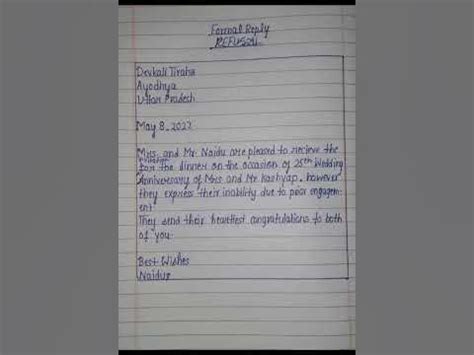 Formal Reply
REFUSAL
Devkali Tiraha
Ayodhya
Uttar Pradesh
May 8, 2022
Mrs. and Mr. Naidu are pleased to recieve the
for the dinner on the occasion of 25th Wedding
Anniversary of Mrs and Mr Kashyap, however
they express their inability due to prior engagem
ent
They send their heartiest congratulations to both
of you.
Best Wishes
Naidus